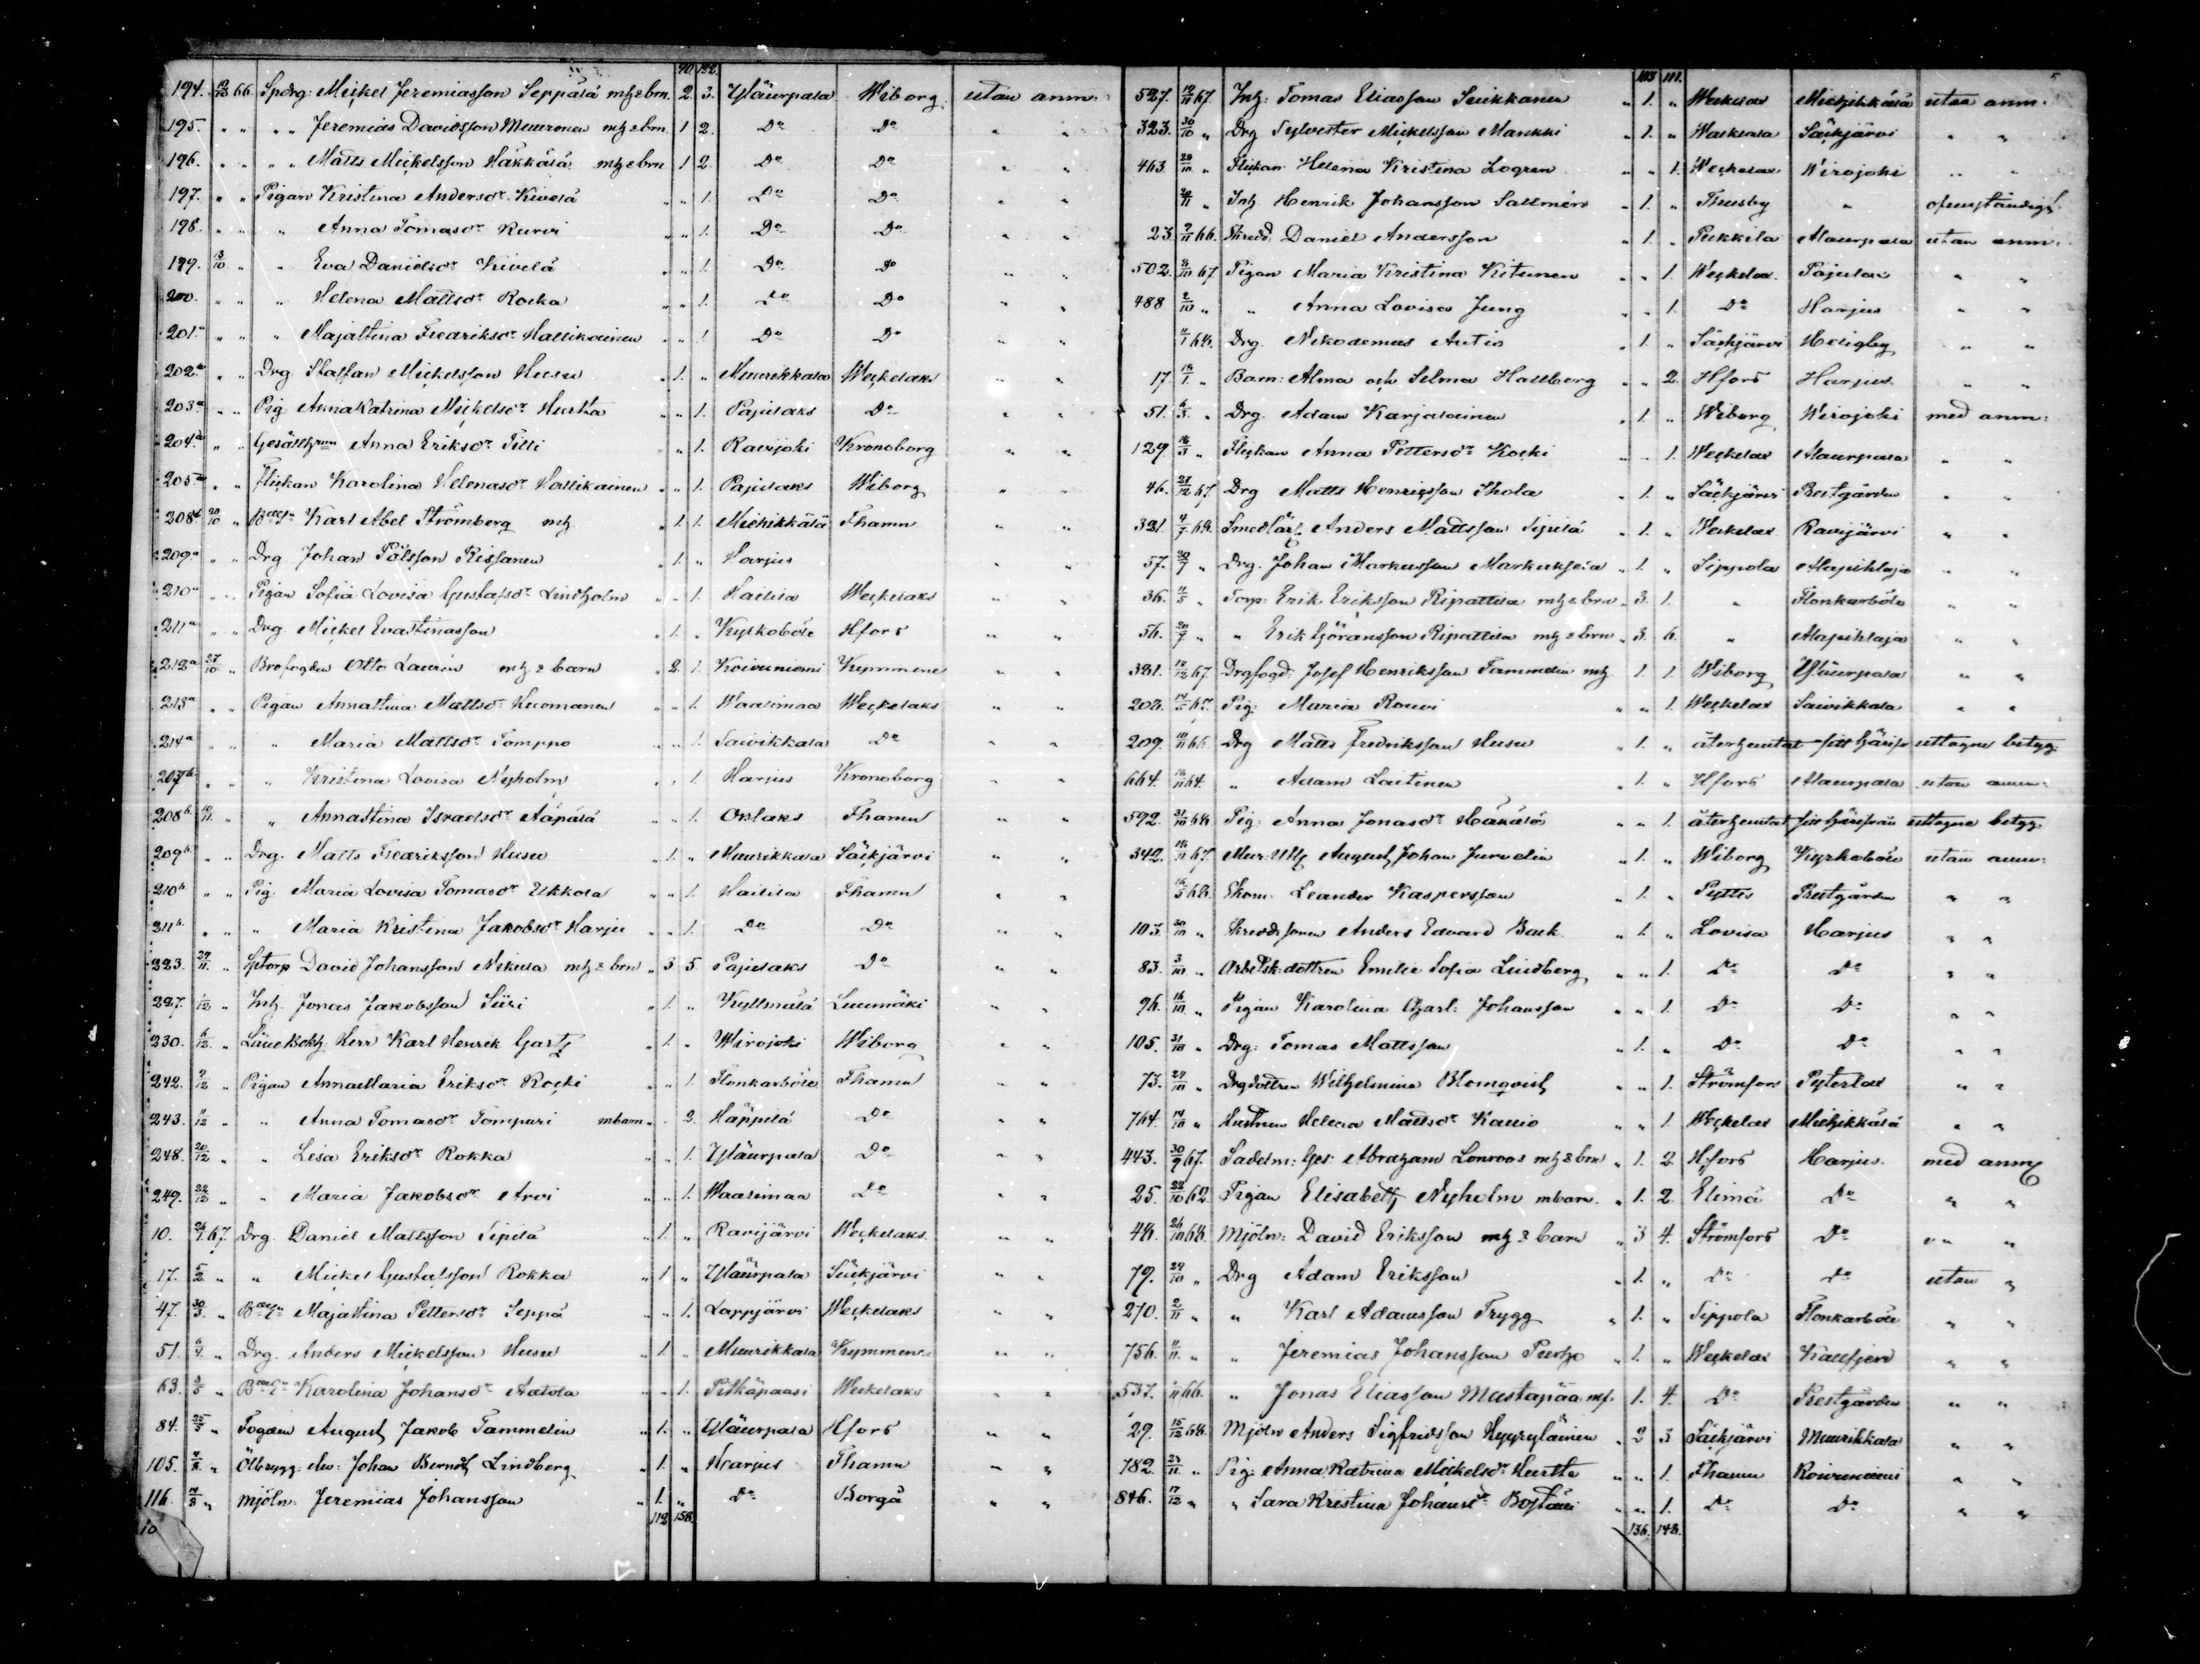 90. 122.
194. 12/10 66. Spdrg: Mickel Jeremiasson Seppälä mh & brn. 2. 3. Yläurpala Wiborg utan anm:
195. " " " " Jeremias Davidsson Muuronen mh & brn. 1 2. Do Do " "
196. " " " " Matts Mickelsson Häkkälä mh & brn 1 2. Do Do " "
197. " " Pigan Kristina Andersdr Kivelä " " 1. Do Do " "
198. " " " Anna Tomasdr Kurvi " " 1. Do Do " "
199. 13/10 " " Eva Danielsdr Kivelä " " 1. Do Do " "
200. " " " Helena Mattsdr Rocka " " 1. Do Do " "
201. " " " Majastina Fredriksdr Hallikainen " " 1 Do Do " "
202.a " " Drg Staffan Mickelsson Husu " 1. " Muurikkala Weckelaks " "
203.a " " Pig Anna Katrina Mickelsdr Hurtta " " 1. Pajulaks Do " "
204.a " " Anna Eriksdr Tilli " " 1. Ravijoki Kronoborg " "
205.a " " Flickan Karolina Helenasdr Hallikainen " " 1. Pajulaks Wiborg " "
208.a 20/10 " Karl Abel Strömberg mh " 1. 1. Miehikkälä Fhamn " "
209.a " " Drg Johan Pålsson Rissanen " 1. " Harjus " "
210.a " " Pigan Sofia Lovisa Gustafsdr Lindholm " " 1. Hailila Weckelaks " "
211.a " " Drg Mickel Evastinasson " 1. " Kyrkoböle Hfors " "
212.a 27/10 " Brofogden Otto Laurin mh & barn " 2. 1. Koivuniemi Kymmene " "
213.a " " Pigan Annastina Mattsdr Huomanen " " 1. Waalimaa Weckelaks " "
214.a " " " Maria Mattsdr Tomppo " " 1. Saivikkala Do " "
207.b " " " Kristina Lovisa Nyholm " " 1. Harjus Kronoborg " "
208.b 10/11 " " Annastina Israelsdr Aapälä " " 1. Orslaks Fhamn " "
209.b " " Drg. Matts Fredriksson Husu " 1. " Muurikkala Säckjärvi " "
210.b " " Pig. Maria Lovisa Tomasdr Ukkola " " 1. Hailila Fhamn " "
211.b " " " Maria Kristina Jakobsdr Harju " " 1. Do Do " "
223. 29/11 " Sptorp David Johansson Nikula mh & brn " 3 5. Pajulaks Do " "
227. 1/12 " Inh. Jonas Jakobsson Siiri " 1. " Kyllmälä Luumäki " "
230. 6/12 " Herr Karl Henrik " 1. " Wirojoki Wiborg " "
242. 9/12 " Pigan Anna Maria Eriksdr Rocki " " 1. Flonkarböle Fhamn " "
243. 11/12 " " Anna Tomasdr Tompuri mbarn " . 2. Häppilä Do " "
248. 20/12 " " Lisa Eriksdr Rokka " " 1. Yläurpala Do " "
249. 22/12 " " Maria Jakobsdr Arvi " " 1. Waalimaa Do " "
10. 26/1 67. Drg. Daniel Mattsson Sipilä " 1. " Ravijärvi Weckelaks. " "
17. 5/2 " " Mickel Gustafsson Rokka " 1. " Yläurpala Säckjärvi " "
47. 30/3 " Majastina Pettersdr Seppä " " 1. Lappjärvi Weckelaks " "
51. 6/4 " Drg. Anders Mickelsson Husu " 1. " Muurikkala Kymmene " "
63. 3/5 " Karolina Johansdr Aatola " " 1. Pitkäpaasi Weckelaks " "
84. 25/5 " Fogden August Jakob Tammelin " 1. " Yläurpala Hfors " "
105. 7/8 " Ölbrygg: elev: Johan Berndt Lindberg " 1. " Harjus Fhamn " "
116. 17/8 " Mjöln: Jeremias Johansson " 1. " Do Borgå " "
10 112 156.
113 111. 5
527. 12/11 67. Inh: Tomas Eliasson Suikkanen " 1. " Weckelax Miehikkälä utan anm.
323. 30/10 " Drg Sylvester Mickelsson Mankki " 1. " Walkeala Säckjärvi " "
463. 28/10 " Flickan Helena Kristina Logren " " 1. Weckelax Wirojoki " "
" Inh Henrik Johansson Sallmén " 1. " Thusby "
23. 9/11 66. Skrädd: Daniel Andersson " 1. " Pukkila Alaurpala utan anm:
502. 4/10 67. Pigan Maria Kristina Kitunen " " 1. Weckelax Pajulax " "
488 2/10 " " Anna Lovisa Jung " " 1. Do Harjus " "
4/1 68. Drg. Nikodemus Antio " 1. " Säckjärvi Heligby " "
17. 14/1 " Barn: Alma och Selma Hallberg " " 2. Hfors Harjus. " "
51. 6/3 " Drg. Adam Karjalainen " 1. " Wiborg Wirojoki med anm:
129. 16/3 " Flickan Anna Pettersdr Kocki " " 1. Weckelax Alaurpala " "
46. 21/12 67. Drg Matts Henricsson Ihola " 1. " Säckjärvi Prestgården " "
321. 4/7 68. Anders Mattsson Sipilä " 1. " Weckelax Ravijärvi " "
57. 30/7 " Drg. Johan Markusson Markuksela " 1. " Sippola Alapihlaja " "
36. 11/5 " Torp: Erik Eriksson Ripattila mh & brn " 3. 1. " Flonkarböle " "
56. 20/7 " " Erik Göransson Ripattila mh & brn " 3. 6. " Alapihlaja " "
321. 12/12 67. Drgfogd. Josef Henriksson Tammelin mh 1. 1. Wiborg Yläurpala " "
208. 67. Pig. Maria Rouvi " " 1. Weckelax Saivikkala " "
209. 10/11 66. Drg Matts Fredriksson Husu " 1. " återhemtat sitt härifr uttagne betyg.
664. 64. " Adam Laitinen " 1. " Hfors Alaurpala utan anm:
592. 31/10 68. Pig: Anna Jonasdr " " 1. återhemtat sitt härifrån uttagne betyg.
342. 67. August Johan Jurvelin " 1. " Wiborg Kyrkoböle utan anm:
68. Leander Kaspersson " 1. " Pyttis Prestgården " "
103. 30/10 " Skräddsonen Anders Edvard Back " 1. " Lovisa Harjus " "
83. 3/10 " Arbetsk: dottren Emilie Sofia Lindberg " " 1. Do Do " "
96. 16/10 " Pigan Karolina Charl: Johansson " " 1. Do Do " "
105. 31/10 " Drg: Tomas Mattsson " 1. " Do Do " "
73. 24/10 " Drgdottren Wilhelmina Blomqvist " " 1. Strömfors Pyterlax " "
764. 14/10 " Hustrun Helena Mattsdr Kallio " " 1. Weckelax Miehikkälä " "
443. 30/9 67. Sadelm: Ges: Abraham Lonroos mh & brn " 1. 2. Hfors Harjus. med anm
25. 22/10 62. Pigan Elisabeth Nyholm mbarn. " 1. 2. Elimä Do " "
48. 26/10 68. Mjöln: David Eriksson mh & barn " 3 4. Strömfors Do " "
79. 29/10 " Drg Adam Eriksson " 1. " Do Do utan "
270. 2/11 " " Karl Adamsson Trygg " 1. " Sippola Flonkarböle " "
756. 11/11 " " Jeremias Johansson Purho " 1. " Weckelax Kallfjerd " "
537. 66. " Jonas Eliasson Mustapää mf. 1. 4. Do Prestgården " "
29. 15/12 68. Mjöln Anders Sigfridsson Hyyryläinen " 2 3 Säckjärvi Muurikkala " "
782. 23/11 " Pig: Anna Katrina Mickelsdr Hurtta " " 1. Fhamn Koivuniemi " "
846. 17/12 " " Sara Kristina Johansdr " " 1. Do Do " "
136. 148.